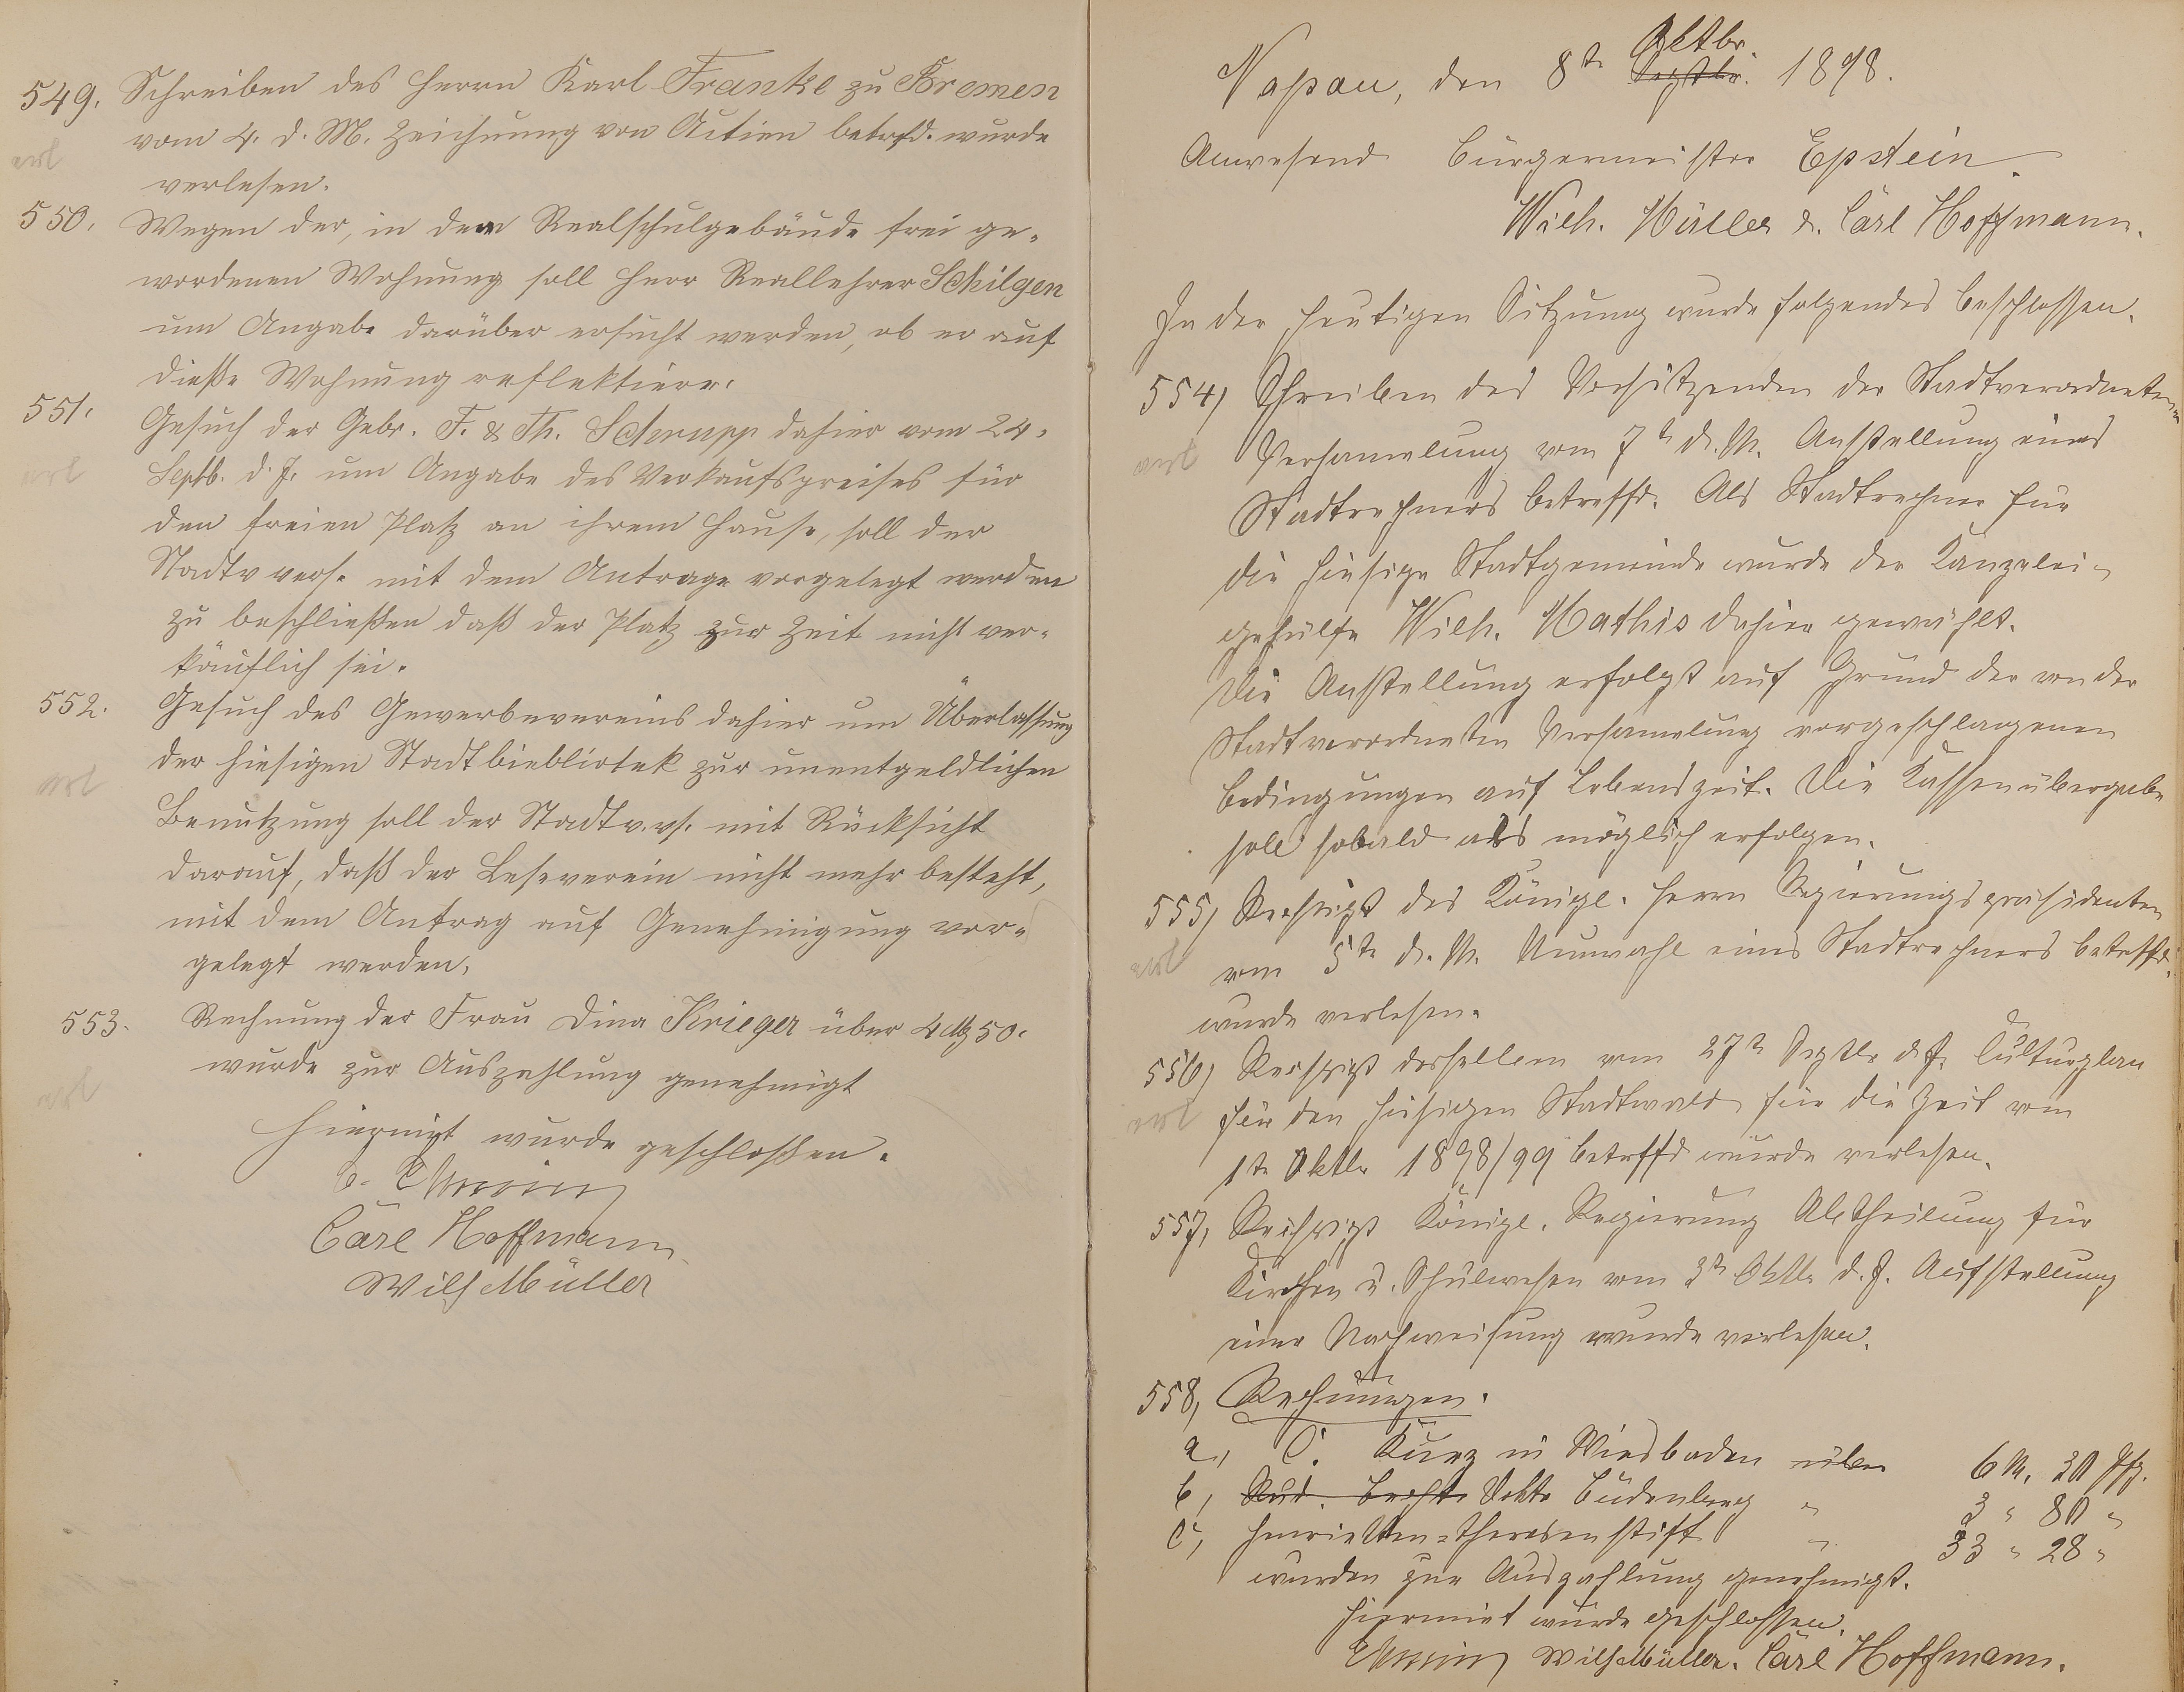 549. Schreiben des Herrn Karl Franke zu Bremen
vom 4. d. M. Zeichnung von Actien betrfd. wurde
erl
verlesen.
550. Wegen der, in dem Realschulgebäude frei ge-
wordenen Wohnung soll Herr Reallehrer Schilgen
um Angabe darüber ersucht werden, ob er auf
dieße Wohnung reflektiere.
551. Gesuch der Gebr. F. & Th. Schrupp dahier vom 24.
erl
Septb. d. J. um Angabe des Verkaufspreises für
den freien Platz an ihrem Hause, soll der
Stadtv vers. mit dem Antrage vorgelegt werden
zu beschließen daß der Platz zur Zeit nicht ver-
käuflich sei.
552. Gesuch des Gewerbevereins dahier um Überlassung
der hiesigen Stadtbiebliotek zur unentgeldlichen
erl
Benutzung soll der Stadtv. vs. mit Rücksicht
darauf, daß der Leseverein nicht mehr besteht,
mit dem Antrag auf Genehmigung vor-
gelegt werden.
553. Rechnung der Frau Dina Krieger über 4 M 50.
wurde zur Auszahlung genehmigt
erl
Hiermit wurde geschloßen.
Epstein
Carl Hoffmann
Wilh Müller
Oktbr.
Naßau, den 8te Septbr. 1898.
Anwesend Bürgermeister Epstein.
Wilh. Müller & Carl Hoffmann.
In der heutigen Sitzung wurde folgendes beschlossen.
554, Schreiben des Vorsitzenden der Stadtverordneten-
erl
Versamelung vom 7te d. M. Anstellung eines
Stadtrechners betreffd. Als Stadtrechner für
die hiesige Stadtgemeinde wurde der Kanzelei-
gehülfe Wilh. Mathis dahier gewählt.
Die Anstellung erfolgt auf Grund der von der
Stadtverordneten Versamelung vorgeschlagenen
Bedingungen auf Lebenszeit. Die Kassenübergabe
soll sobald als möglich erfolgen.
555, Rescript des Königl. Herrn Regierungspräsidenten
erl
vom 5te d. M. Neuwahl eines Stadtrechners betreffd.
wurde verlesen.
556, Rescript desselben vom 27te Septbr d. J. Culturplan
erl
für den hiesigen Stadtwald für die Zeit vom
1te Oktbr 1898/99 betrffd wurde verlesen.
557, Rescript Königl. Regierung Abtheilung für
Kirchen u. Schulwesen vom 3te Oktbr d. J. Aufstellung
einer Nachweisung wurde verlesen.
558, Rechnungen.
a, C. Kurz in Wiesbaden über 6 M. 30 Pfg.
b, Rud. Bechte Dokto Büdenberg " 3 " 80 "
c, Henrietten-Theresenstift " 33 " 28 "
wurden zur Auszahlung genehmigt.
Hiermit wurde geschlossen.
Epstein Wilh Müller. Carl Hoffmann.